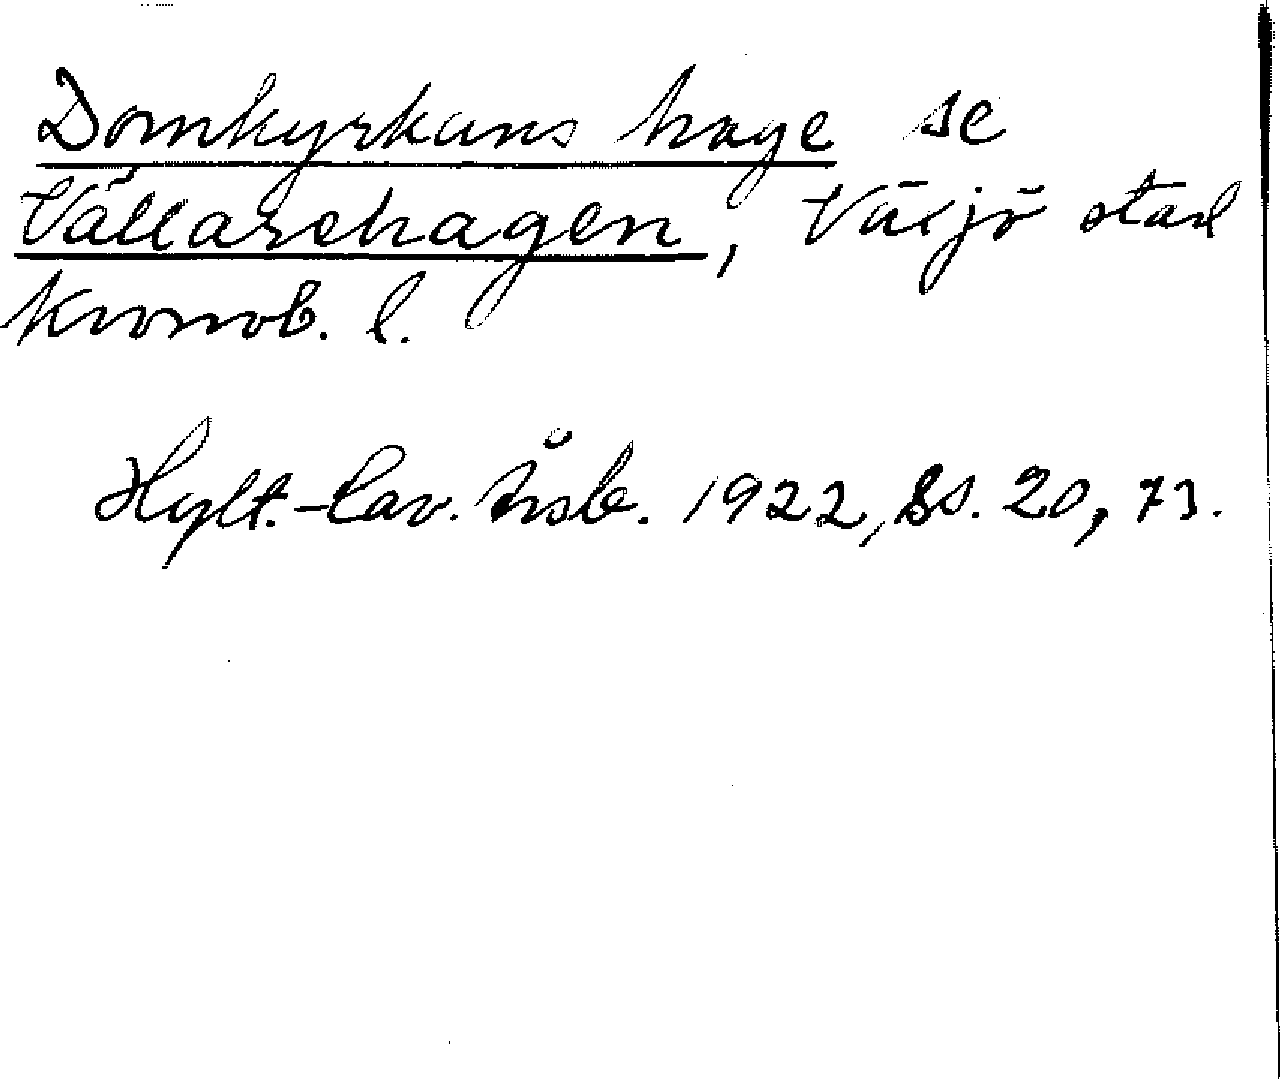 Domkyrkans hage se
Vällarehagen, Växjö stad
Kronob. l.
Hylt.-Cav. Årsb. 1922, Ss. 20, 73.